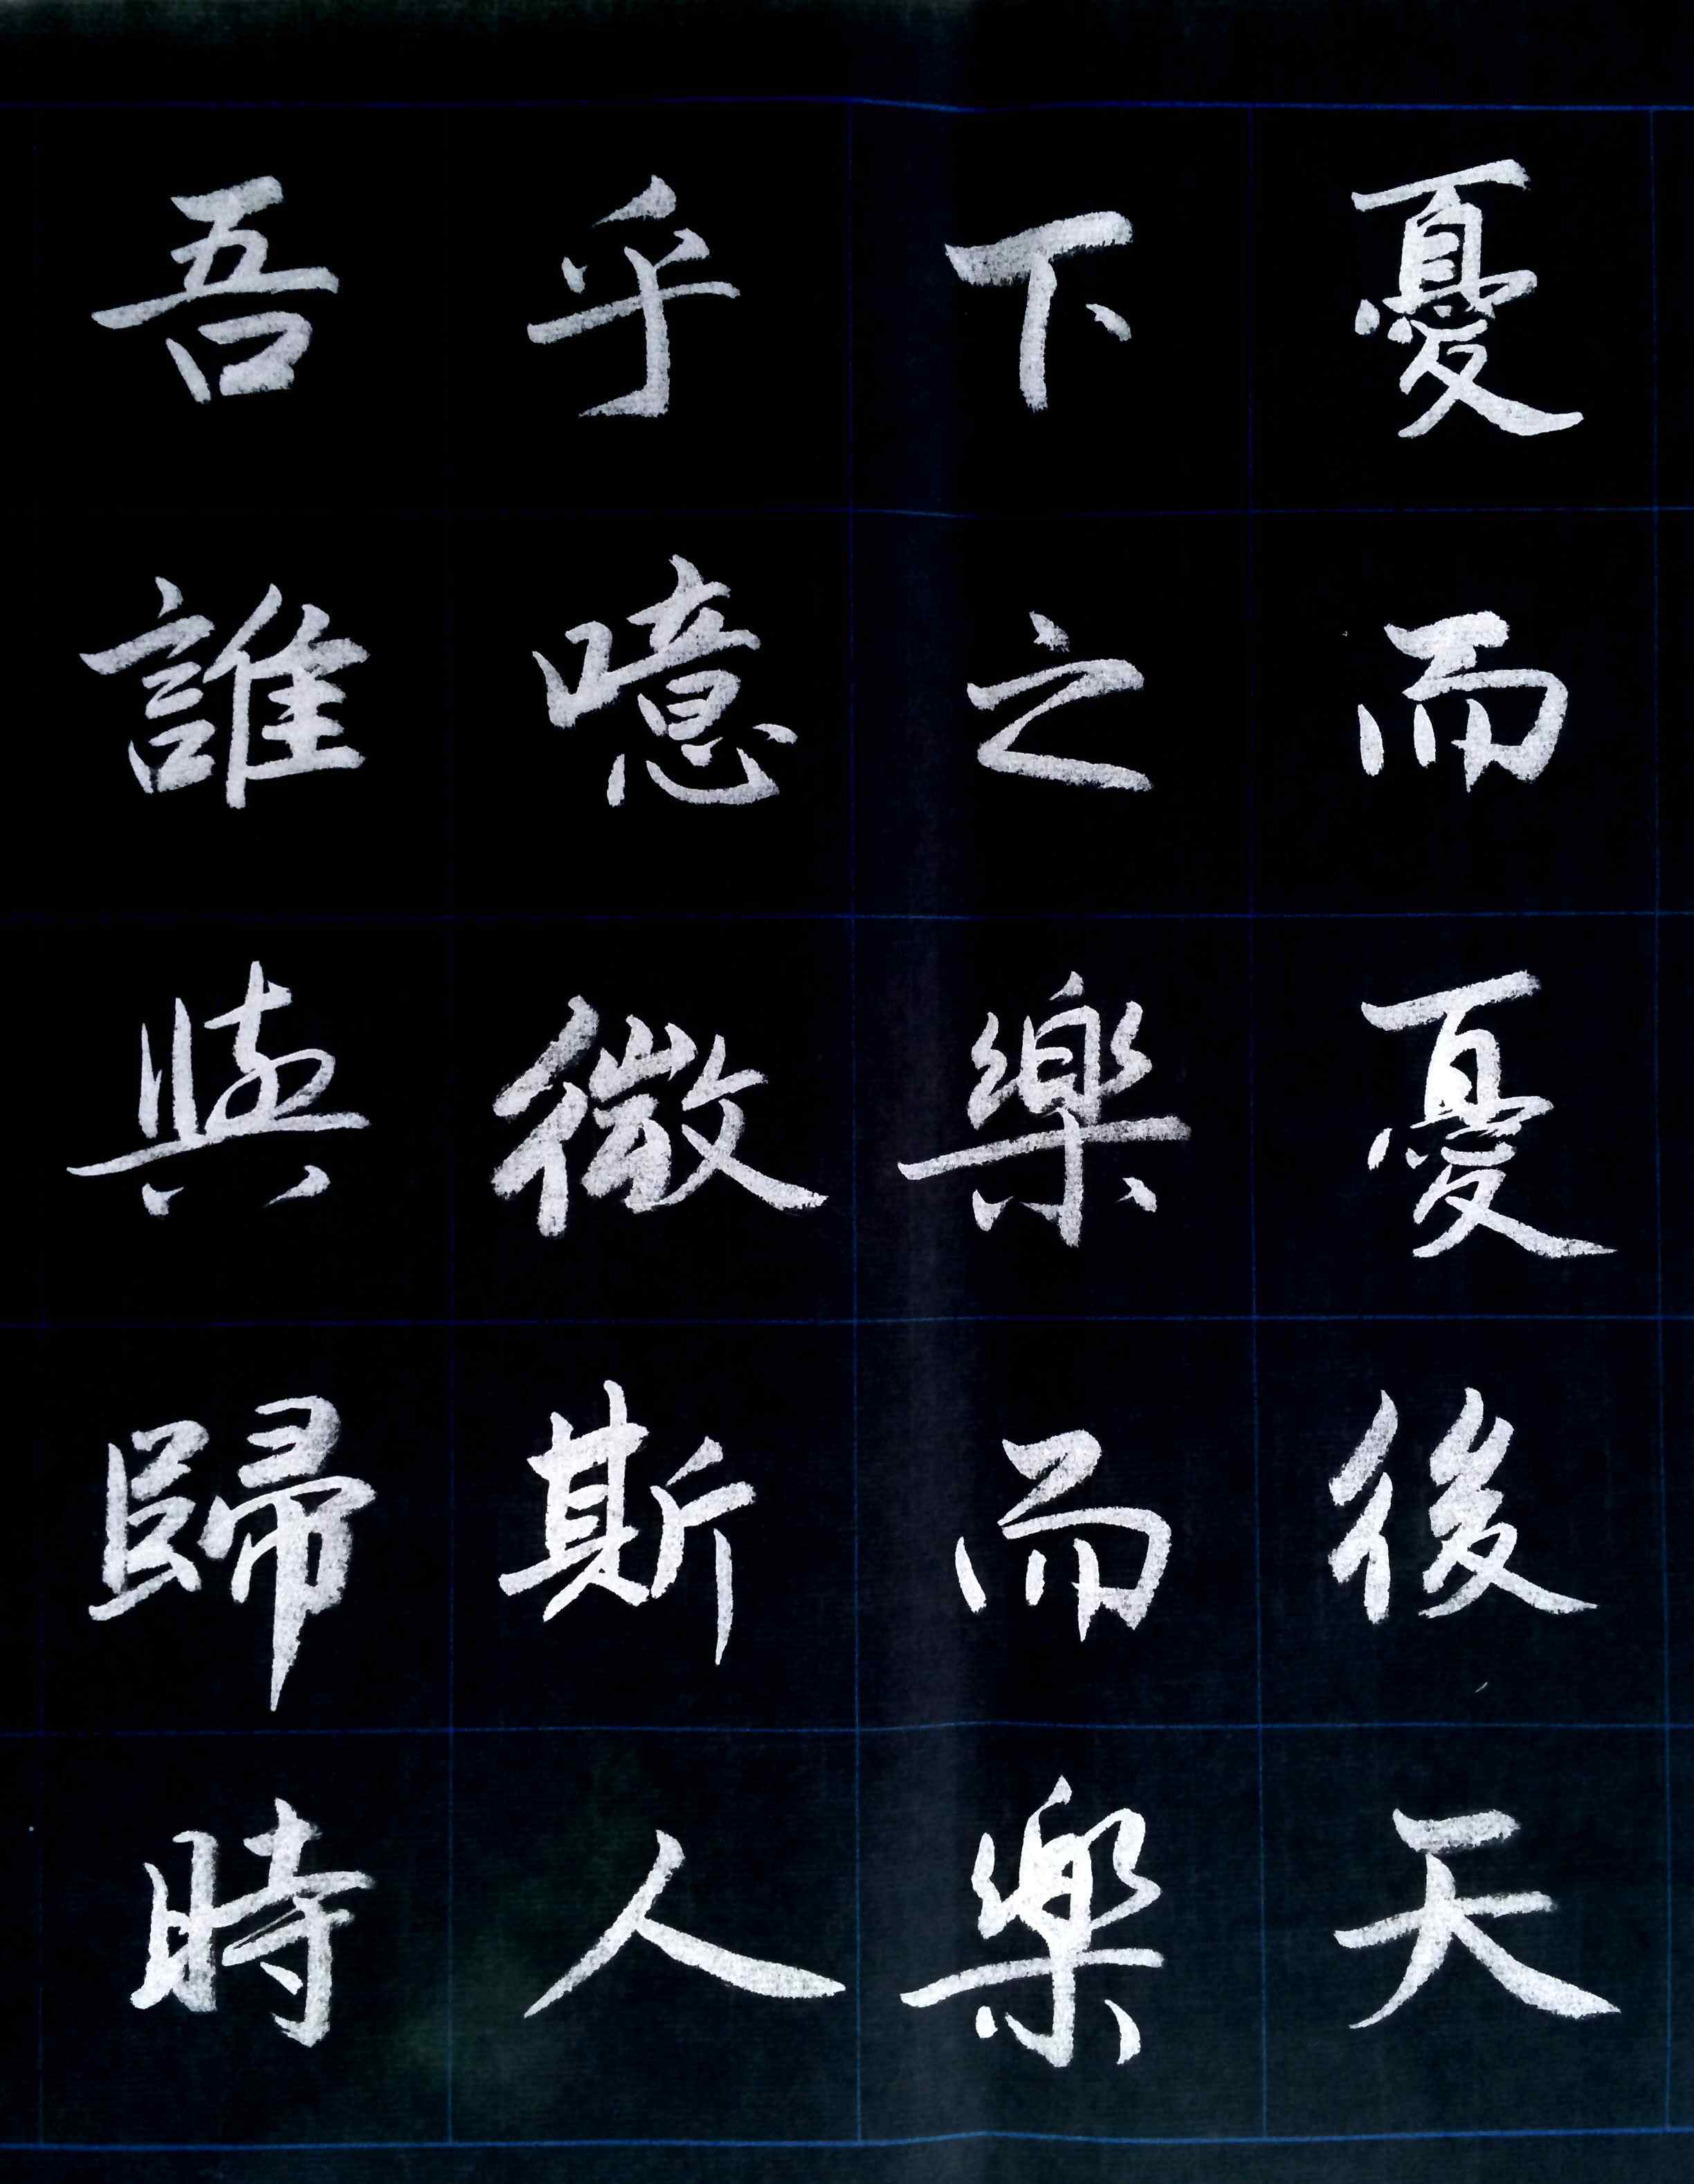 憂而憂後天
下之樂而樂
乎噫微斯人
吾誰與歸時